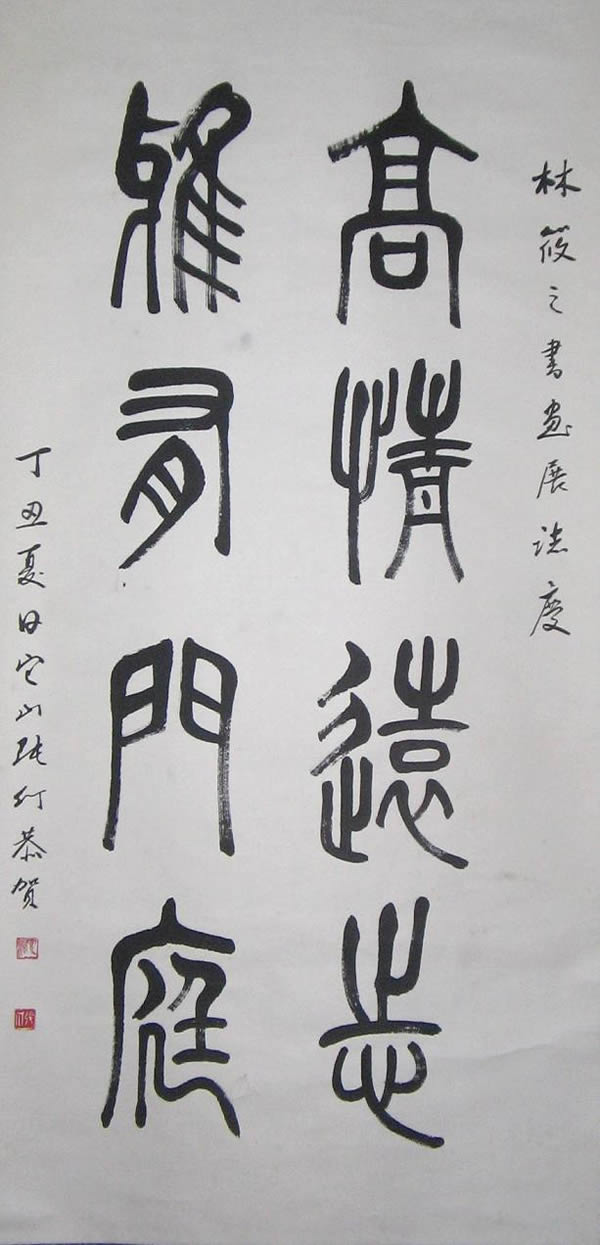 林筱之書画展誌慶
高情遠志
雅有門庭
丁丑夏日它山张行恭賀